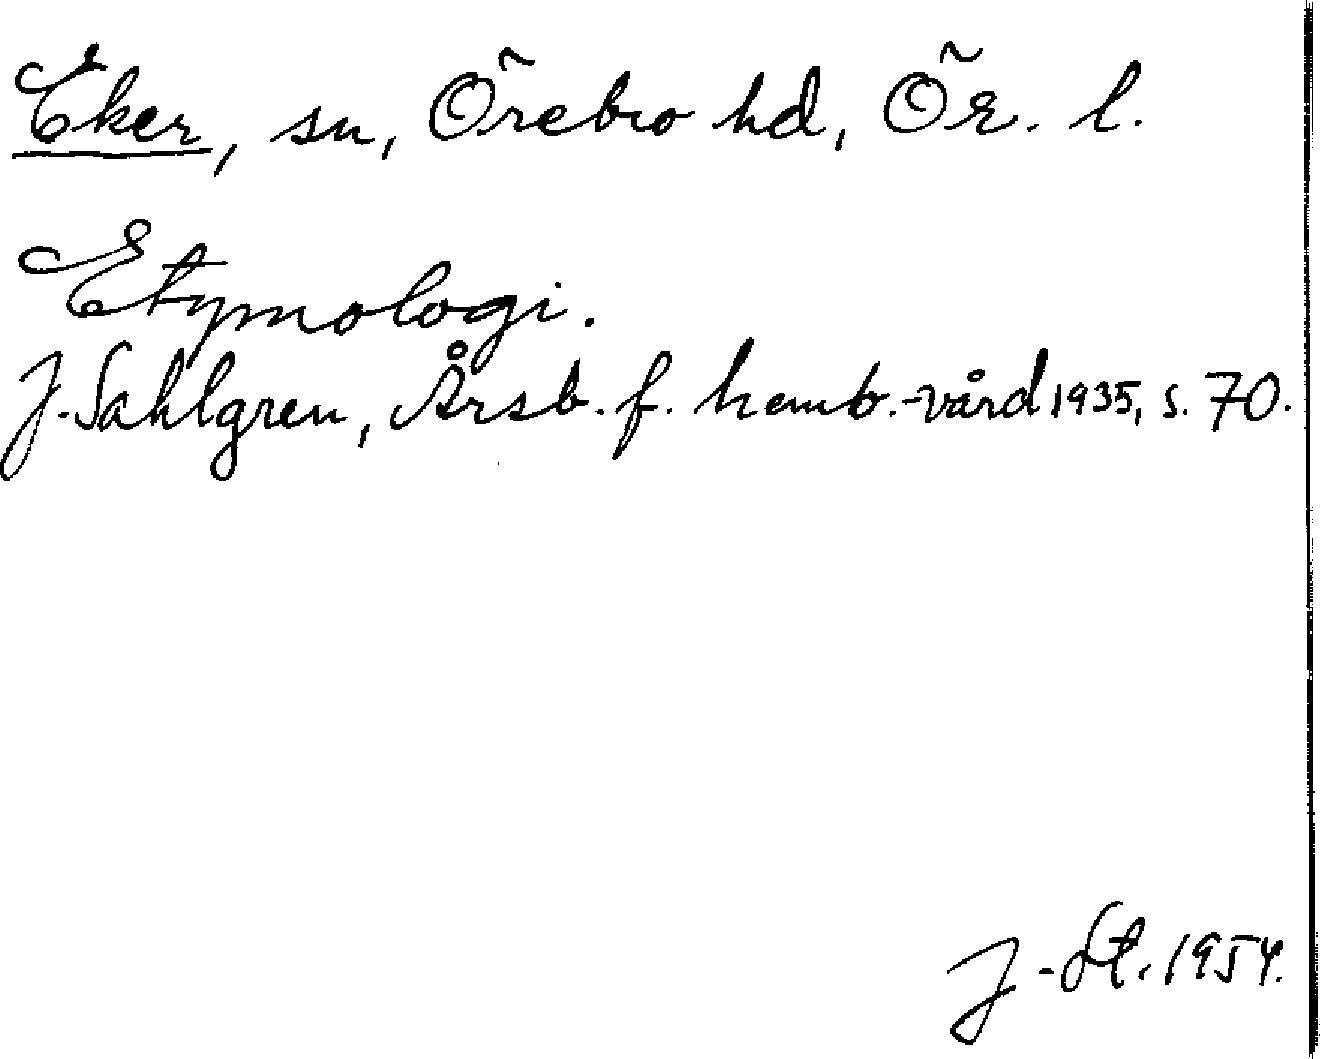 Eker, sn, Örebro hd, Ör. l.
Etymologi.
J. Sahlgren, Årsb. f. hemb.-vård 1935, s. 70.
J-St. 1954.